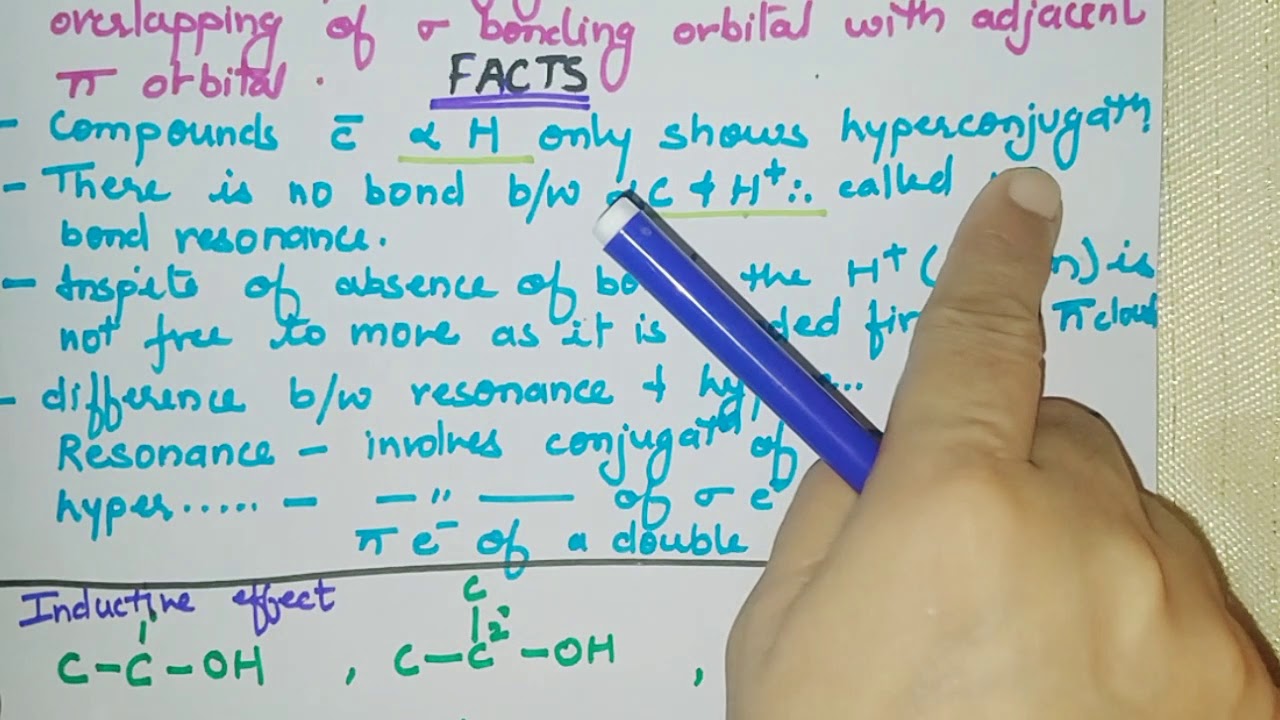 overlapping of σ bonding orbital with adjacent
π orbital.
FACTS
- Compounds c̄ α H only shows hyperconjugatⁿ
- There is no bond b/w C & H⁺ ∴ called
bond resonance.
- Inspite of absence of the H⁺ ( n) is
not free to move as it is π cloud
- difference b/w resonance &
Resonance - involves conjugatⁿ of
hyper..... - - " - of σ e⁻
π e⁻ of a double
Inductive effect
C-C-OH , C-C-OH ,
C
2°